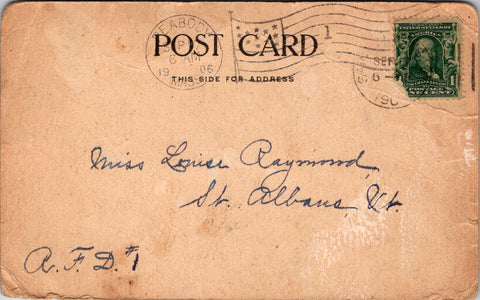 PEABODY
6 AM
1906
MASS
1
POST CARD
THIS SIDE FOR ADDRESS
SEP
6
190
UNITED STATES OF
POSTAGE
ONE CENT
Miss Louise Raymond,
St. Albans, Vt.
R. F. D. #1